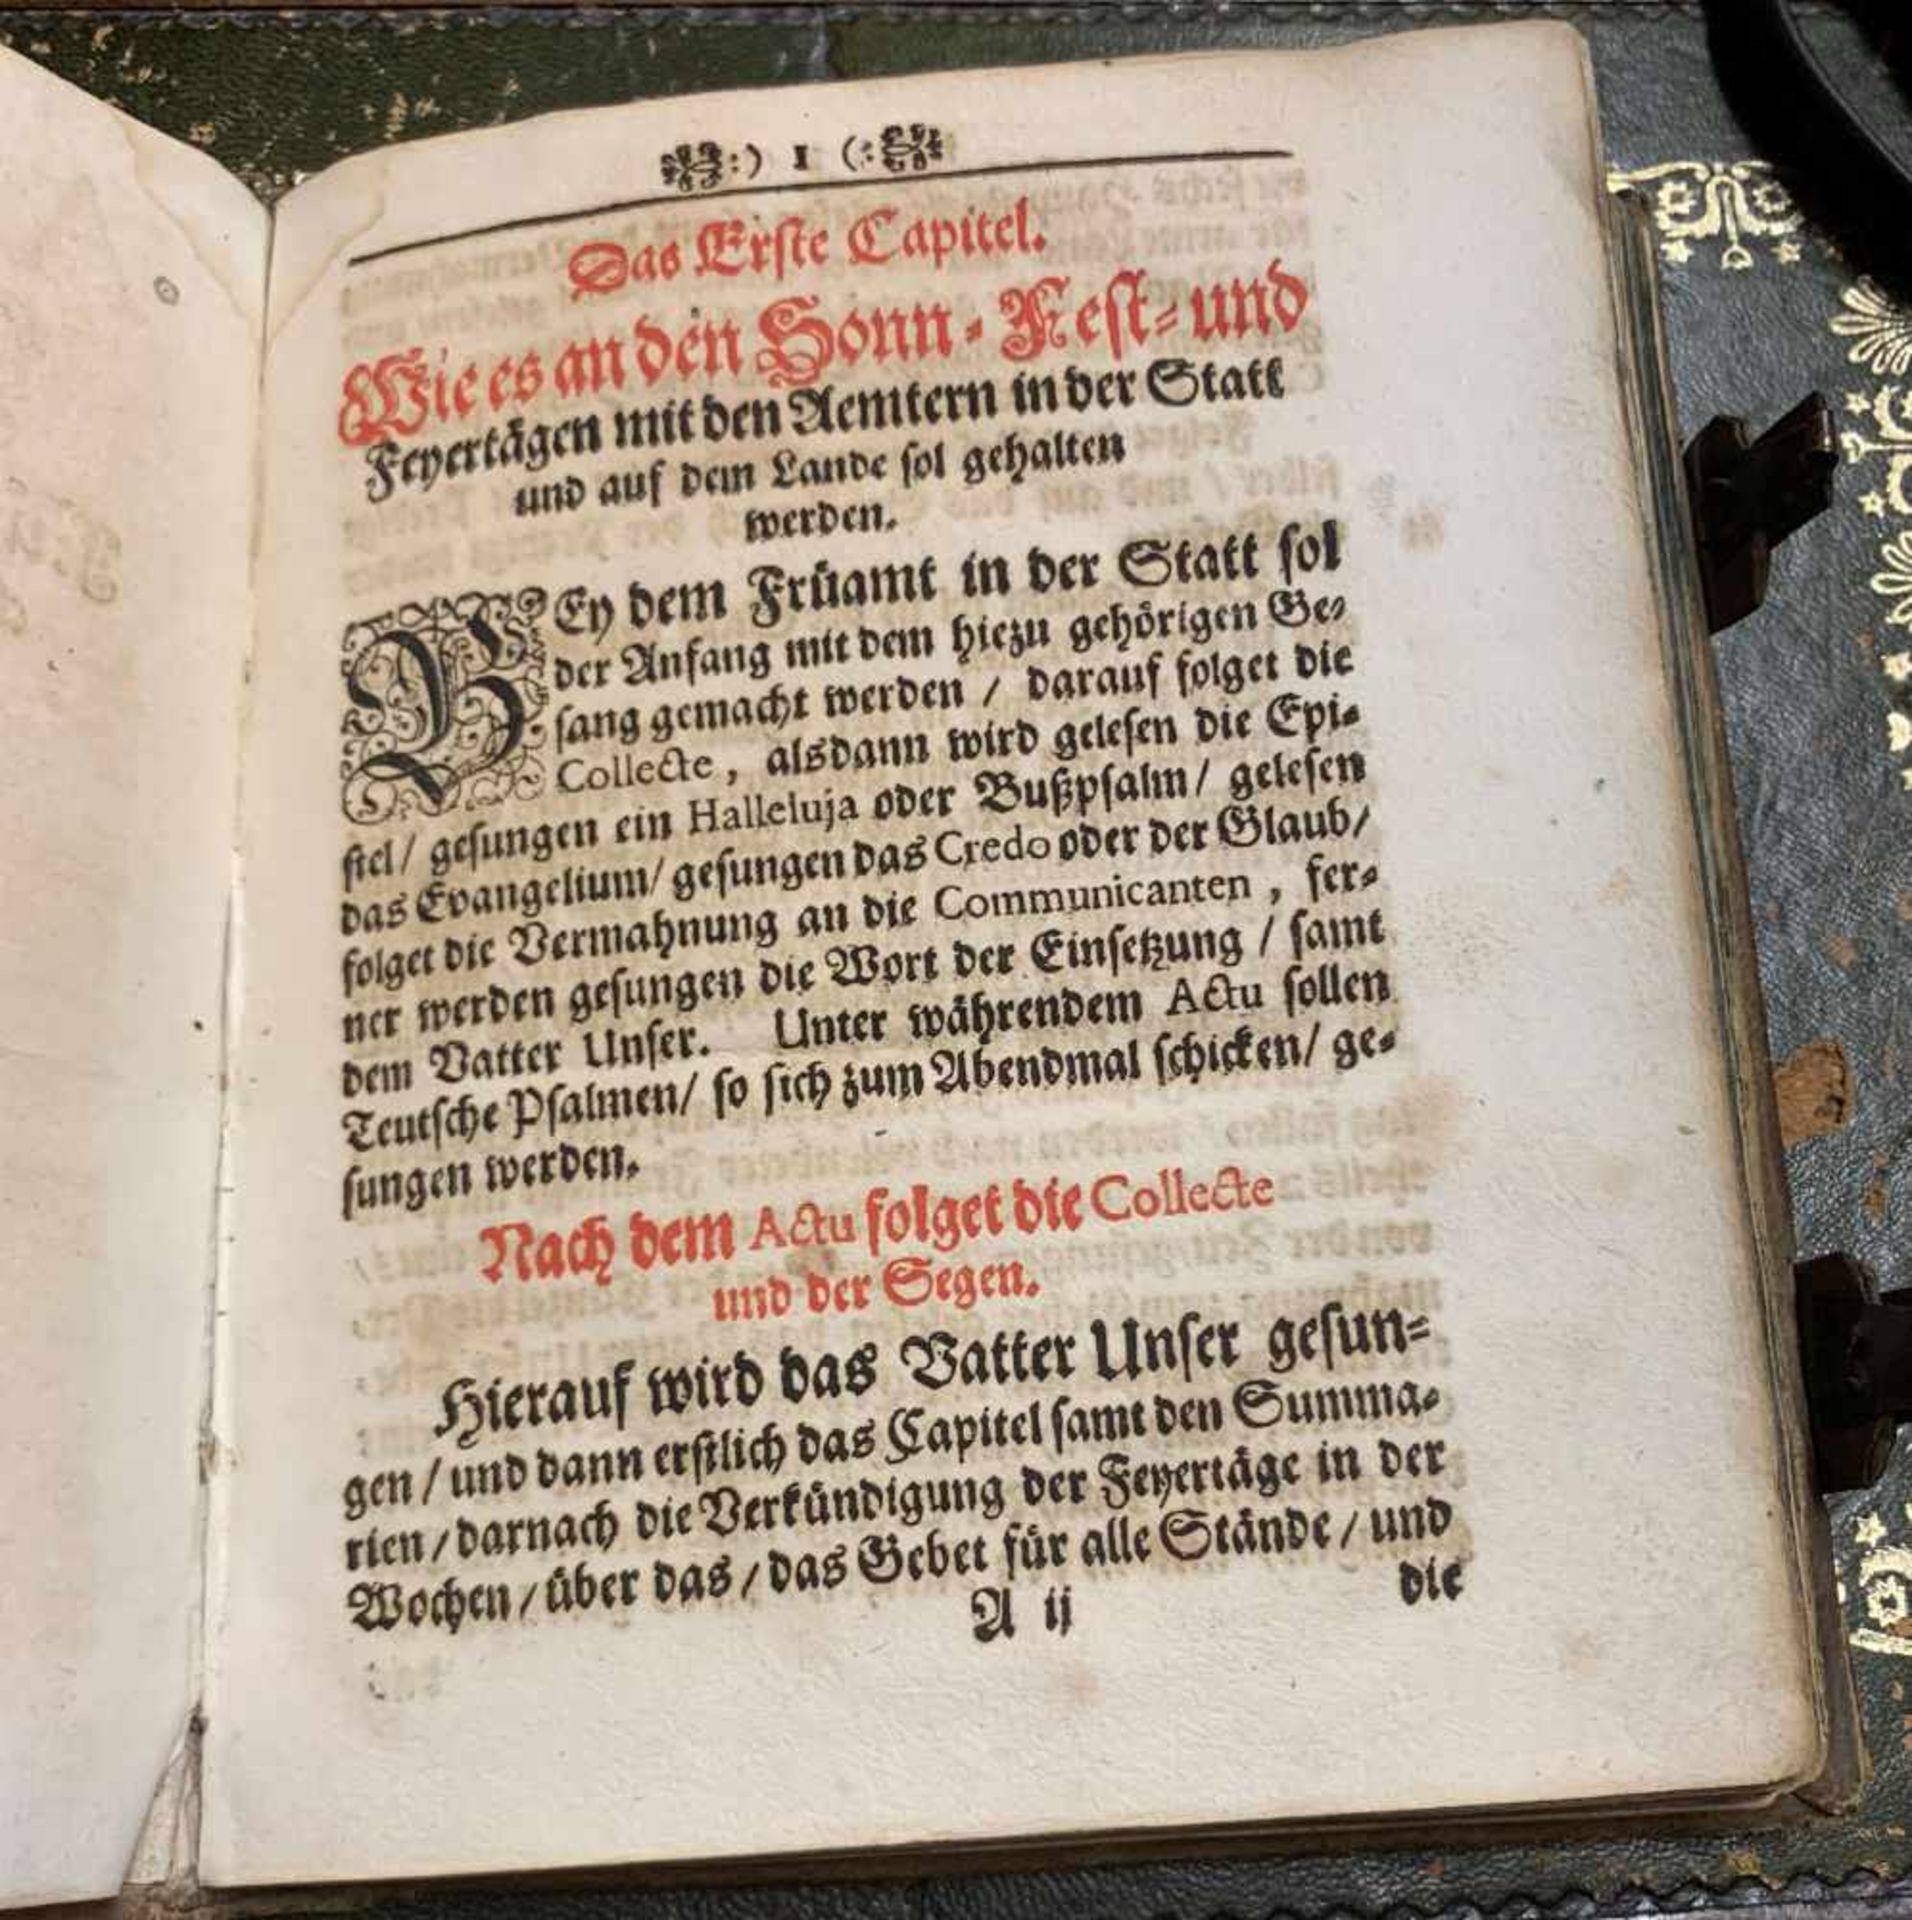 :) 1 (:
Das Erste Capitel.
Wie es an den Sonn- Fest- und
Feyertägen mit den Aemtern in der Statt
und auf dem Lande sol gehalten
werden.
BEy dem Früamt in der Statt sol
der Anfang mit dem hiezu gehörigen Ge-
sang gemacht werden / darauf folget die
Collecte, alsdann wird gelesen die Epi-
stel / gesungen ein Halleluja oder Bußpsalm / gelesen
das Evangelium / gesungen das Credo oder der Glaub /
folget die Vermahnung an die Communicanten, fer-
ner werden gesungen die Wort der Einsetzung / samt
dem Vatter Unser. Unter währendem Actu sollen
Teutsche Psalmen / so sich zum Abendmal schicken / ge-
sungen werden.
Nach dem Actu folget die Collecte
und der Segen.
Hierauf wird das Vatter Unser gesun-
gen / und dann erstlich das Capitel samt den Summa-
rien / darnach die Verkündigung der Feyertäge in der
Wochen / über das / das Gebet für alle Stände / und
A ij die